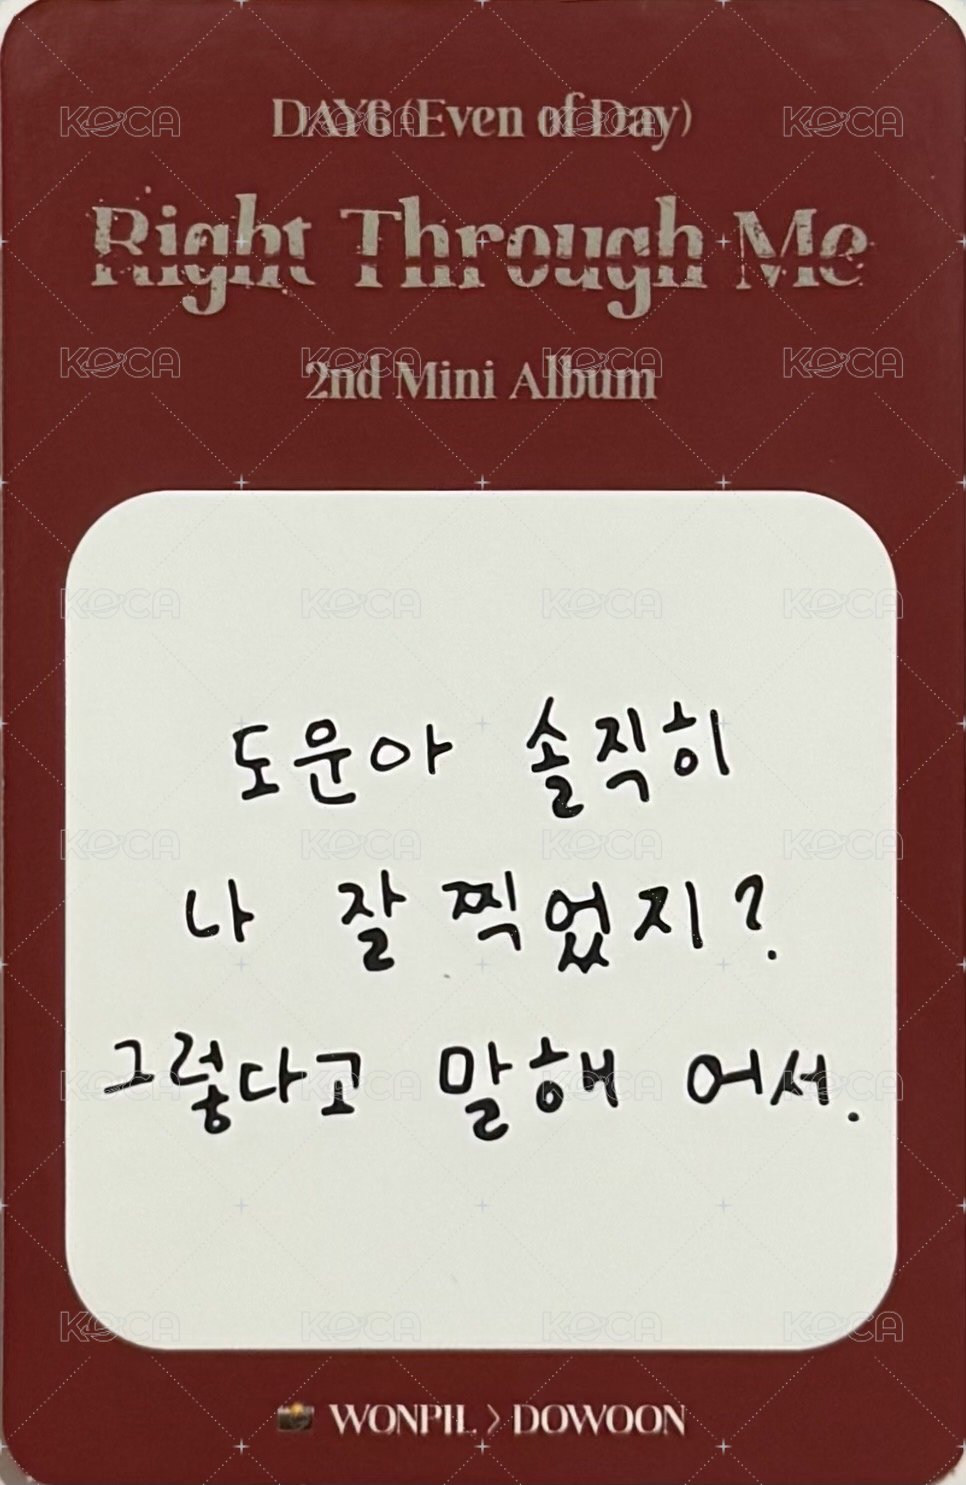 DAY6 (Even of Day)
Right Through Me
2nd Mini Album
도운아 솔직히
나 잘 찍었지?
그렇다고 말해 어서.
WONPIL > DOWOON
KOCA